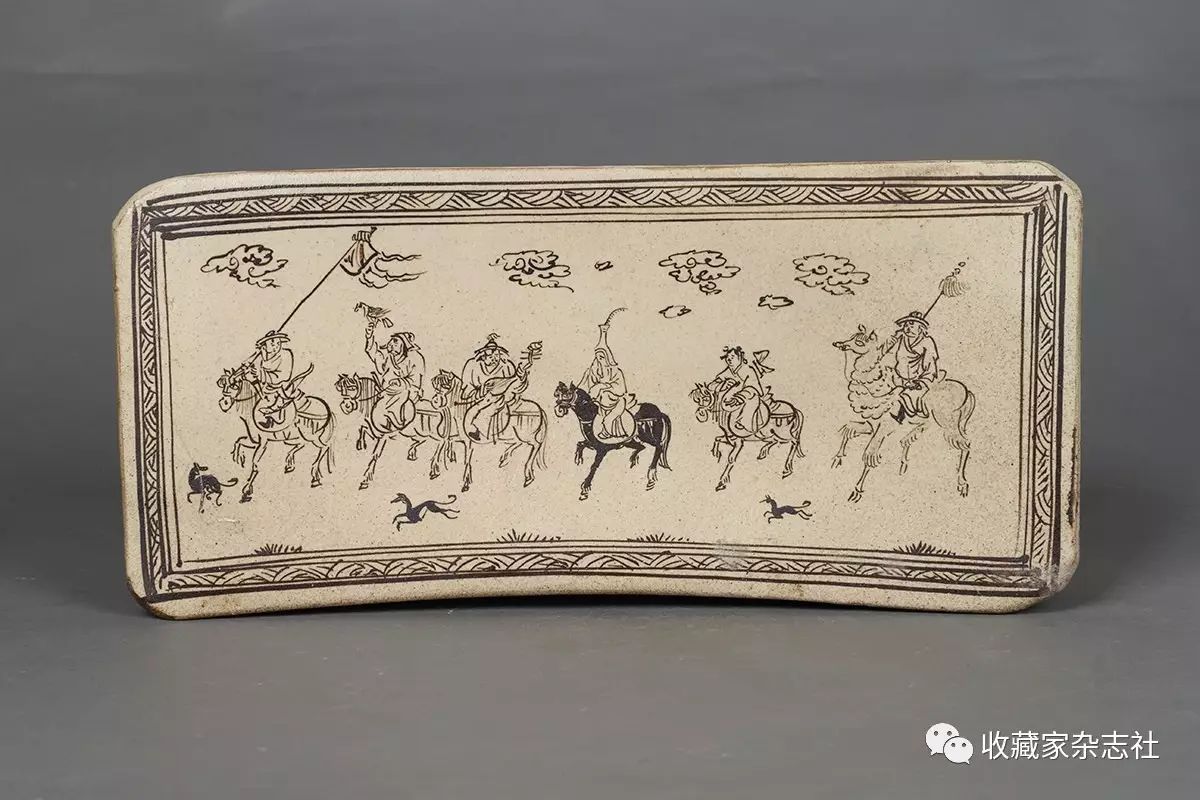 收藏家杂志社